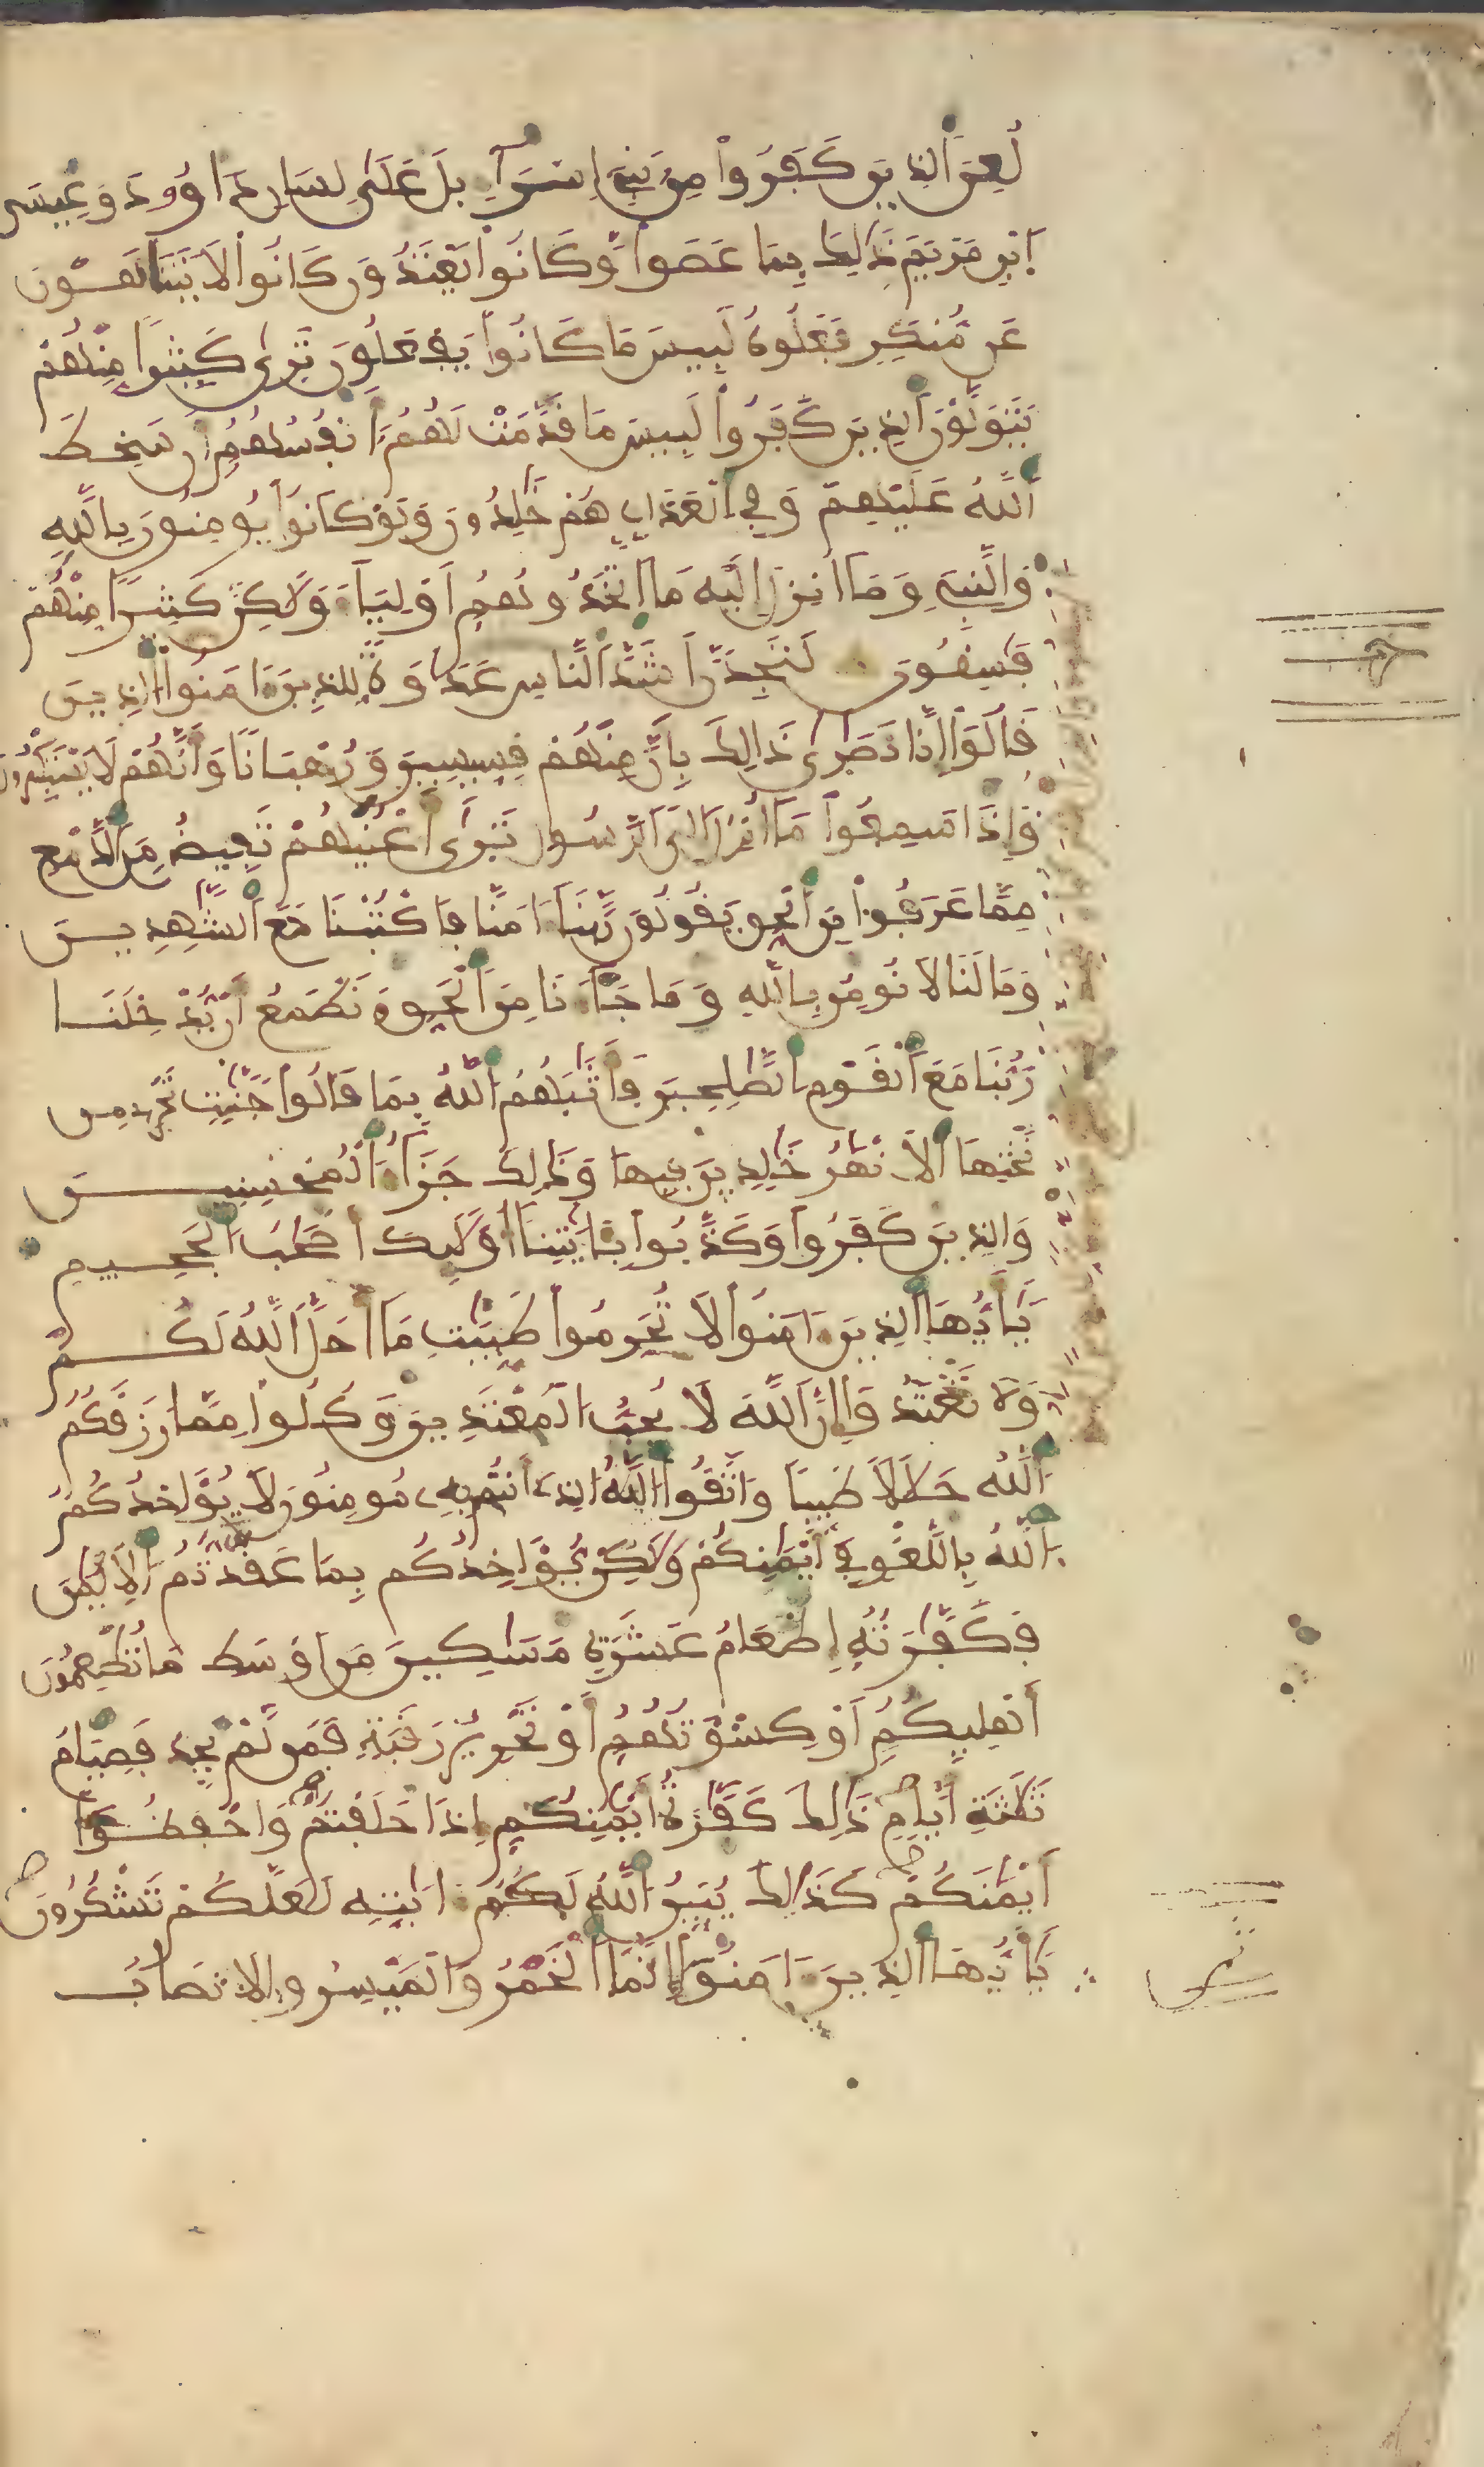 لُعِنَ ٱلذِينَ كَفَرُوا۟ مِنۢ بَنِےٓ إِسْرَآءِيلَ عَلَىٰ لِسَانِ دَاوُۥدَ وَعِيسَى
اَ۪بْنِ مَرْيَمَ ذَٰلِكَ بِمَا عَصَوا۟ وَّكَانُوا۟ يَعْتَدُونَ كَانُوا۟ لَا يَتَنَاهَوْنَ
عَن مُّنكَرٍ فَعَلُوهُ لَبِيسَ مَا كَانُوا۟ يَفْعَلُونَ تَرَىٰ كَثِيرًا مِّنْهُمْ
يَتَوَلَّوْنَ ٱلذِينَ كَفَرُوا۟ لَبِيسَ مَا قَدَّمَتْ لَهُمُۥٓ أَنفُسُهُمُۥٓ أَن سَخِطَ
ٱللَّهُ عَلَيْهِمْ وَفِي ٱلْعَذَابِ هُمْ خَٰلِدُونَ وَلَوْ كَانُوا۟ يُومِنُونَ بِاللَّهِ
وَالنَّبِيٓءِ وَمَآ أُنزِلَ إِلَيْهِ مَا ٱتَّخَذُوهُمُۥٓ أَوْلِيَآءَ وَلَٰكِنَّ كَثِيرًا مِّنْهُمْ
فَٰسِقُونَ لَتَجِدَنَّ أَشَدَّ ٱلنَّاسِ عَدَٰوَةً لِّلذِينَ ءَامَنُوا۟ الذِينَ
قَالُوٓا۟ إِنَّا نَصَٰرَىٰ ذَٰلِكَ بِأَنَّ مِنْهُمْ قِسِّيسِينَ وَرُهْبَانًا وَأَنَّهُمْ لَا يَسْتَكْبِرُونَ
وَإِذَا سَمِعُوا۟ مَآ أُنزِلَ إِلَى ٱلرَّسُولِ تَرَىٰٓ أَعْيُنَهُمْ تَفِيضُ مِنَ ٱلدَّمْعِ
مِمَّا عَرَفُوا۟ مِنَ ٱلْحَقِّ يَقُولُونَ رَبَّنَآ ءَامَنَّا فَاكْتُبْنَا مَعَ ٱلشَّٰهِدِينَ
وَمَا لَنَا لَا نُومِنُ بِاللَّهِ وَمَا جَآءَنَا مِنَ ٱلْحَقِّ وَنَطْمَعُ أَنْ يُّدْخِلَنَا
رَبُّنَا مَعَ ٱلْقَوْمِ ٱلصَّٰلِحِينَ فَأَثَٰبَهُمُ ٱللَّهُ بِمَا قَالُوا۟ جَنَّٰتٍ تَجْرِے مِن
تَحْتِهَا ٱلَانْهَٰرُ خَٰلِدِينَ فِيهَا وَذَٰلِكَ جَزَآءُ ٱلْمُحْسِنِينَ
وَالذِينَ كَفَرُوا۟ وَكَذَّبُوا۟ بِـَٔايَٰتِنَآ أُو۟لَٰٓئِكَ أَصْحَٰبُ ٱلْجَحِيمِ
يَٰٓأَيُّهَا ٱلذِينَ ءَامَنُوا۟ لَا تُحَرِّمُوا۟ طَيِّبَٰتِ مَآ أَحَلَّ ٱللَّهُ لَكُمْ
وَلَا تَعْتَدُوٓا۟ إِنَّ ٱللَّهَ لَا يُحِبُّ ٱلْمُعْتَدِينَ وَكُلُوا۟ مِمَّا رَزَقَكُمُ
ٱللَّهُ حَلَٰلًا طَيِّبًا وَاتَّقُوا۟ ٱللَّهَ ٱلذِےٓ أَنتُم بِهِۦ مُومِنُونَ لَا يُؤَاخِذُكُمُ
ٱللَّهُ بِاللَّغْوِ فِےٓ أَيْمَٰنِكُمْ وَلَٰكِنْ يُّؤَاخِذُكُم بِمَا عَقَّدتُّمُ ٱلَايْمَٰنَ
فَكَفَّٰرَتُهُۥٓ إِطْعَامُ عَشَرَةِ مَسَٰكِينَ مِنَ اَوْسَطِ مَا تُطْعِمُونَ
أَهْلِيكُمُۥٓ أَوْ كِسْوَتُهُمُۥٓ أَوْ تَحْرِيرُ رَقَبَةٍ فَمَن لَّمْ يَجِدْ فَصِيَامُ
ثَلَٰثَةِ أَيَّامٍ ذَٰلِكَ كَفَّٰرَةُ أَيْمَٰنِكُمُۥٓ إِذَا حَلَفْتُمْ وَاحْفَظُوٓا۟
أَيْمَٰنَكُمْ كَذَٰلِكَ يُبَيِّنُ ٱللَّهُ لَكُمُۥٓ ءَايَٰتِهِۦ لَعَلَّكُمْ تَشْكُرُونَ
يَٰٓأَيُّهَا ٱلذِينَ ءَامَنُوٓا۟ إِنَّمَا ٱلْخَمْرُ وَالْمَيْسِرُ وَالَانصَابُ
حزب
ثمن